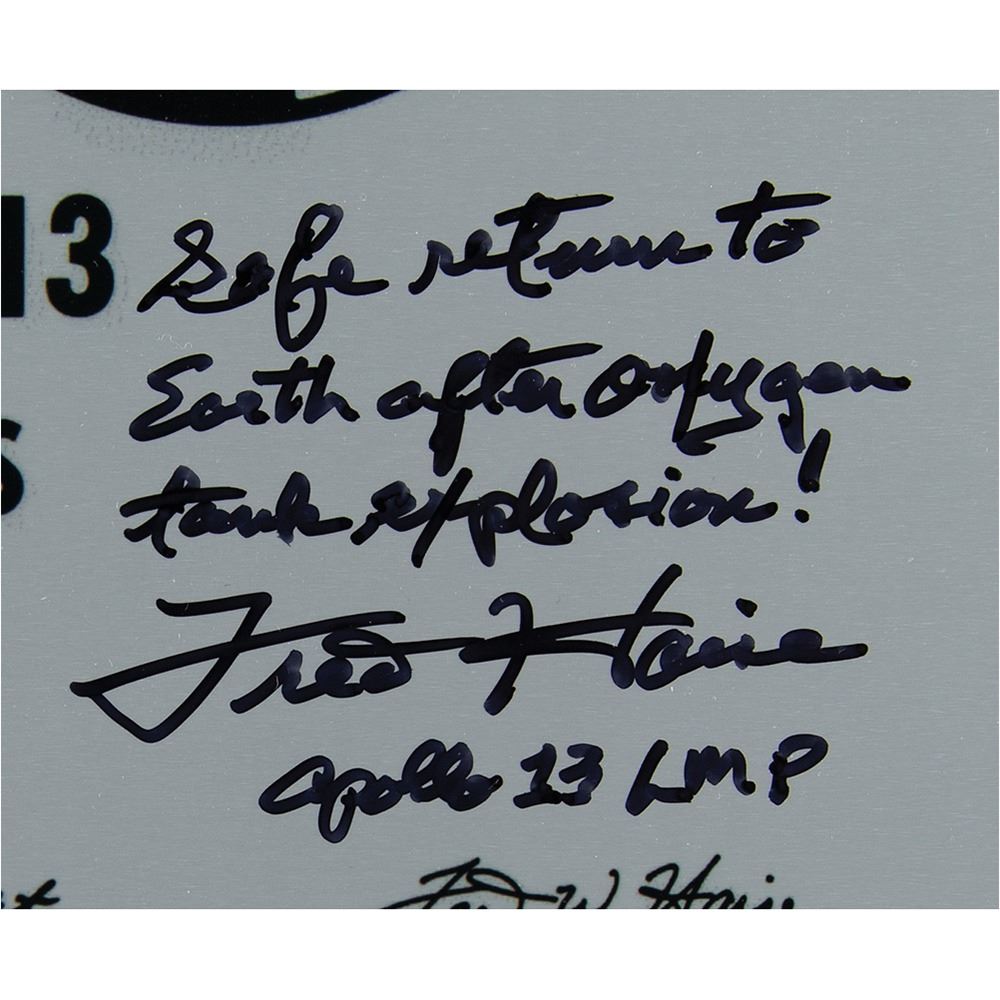 13
Safe return to
Earth after oxygen
tank explosion!
S
Fred Haise
Apollo 13 LMP
Fred W Haise